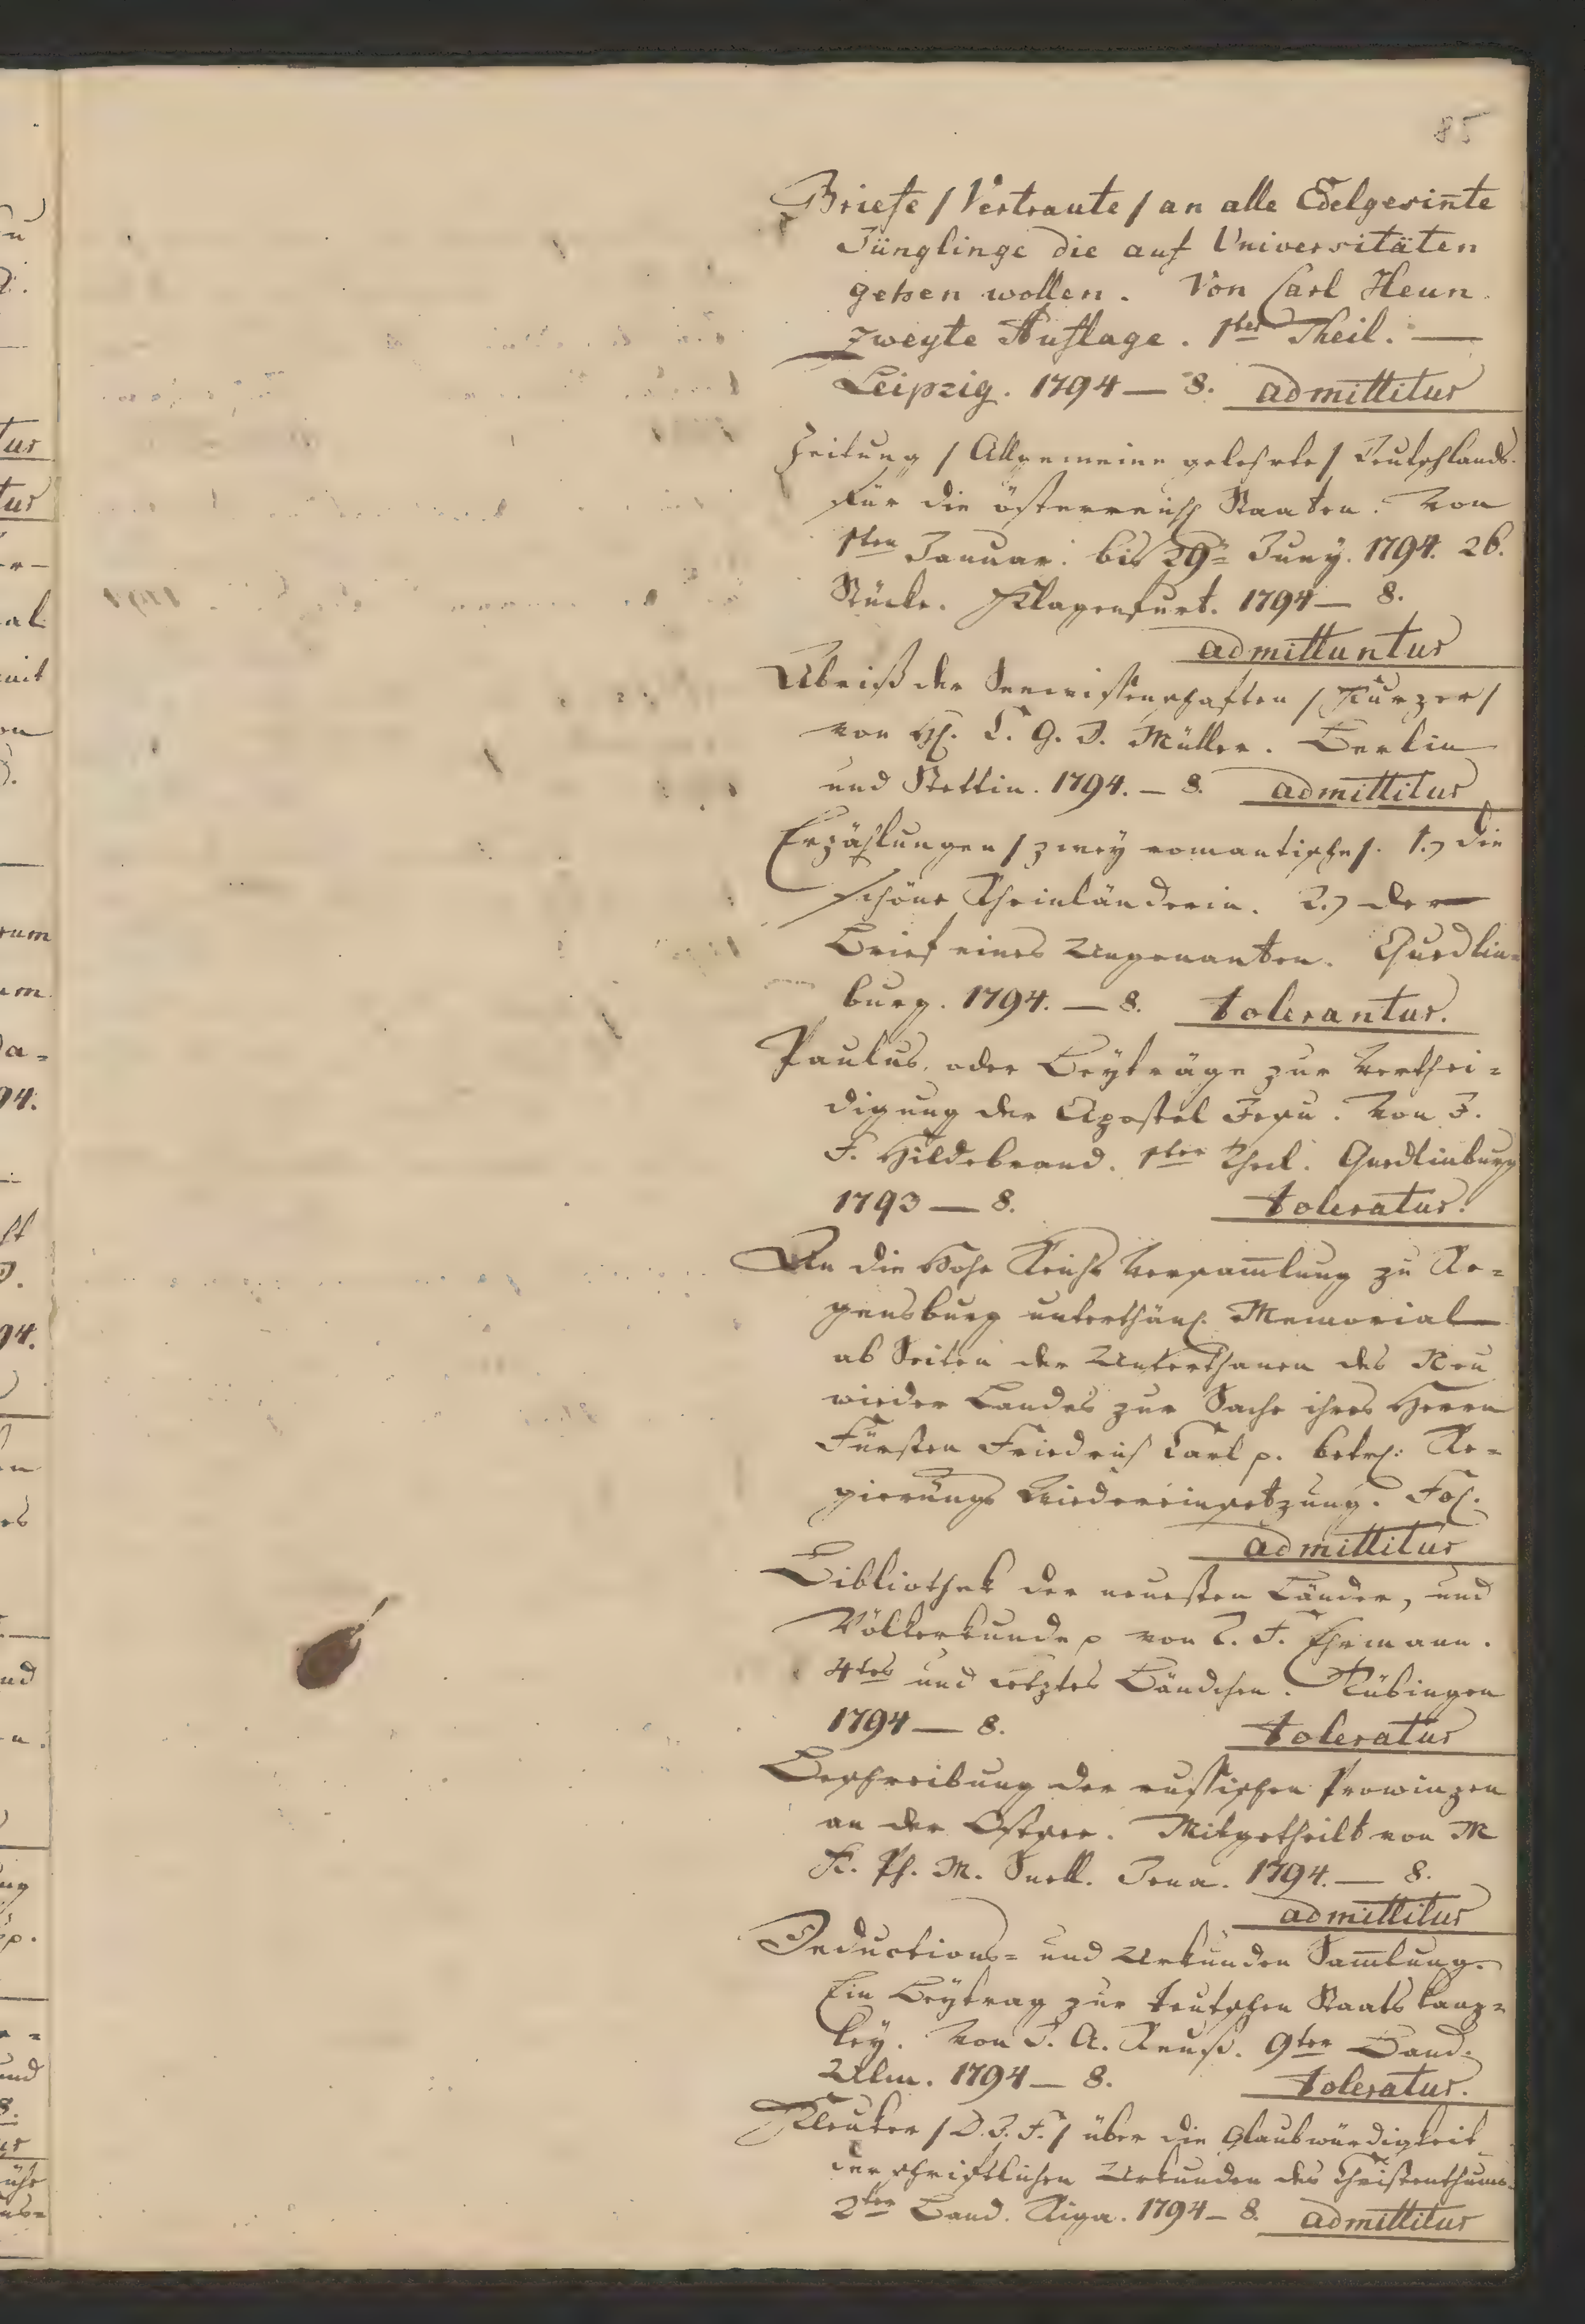 85
Briefe / Vertraute / an alle Edelgesin̄te
Jünglinge die auf Universitäten
gehen wollen. Von Carl Heun.
zweyte Auflage. 1ter Theil. —
Leipzig. 1794 — 8. admittitur
Zeitung / Allgemeine gelehrte / Teutschlands
für die österreich Staaten. Von
1ten Januar. bis 29= Juny. 1794. 26.
Stücke. Klagenfurt. 1794 — 8.
admittuntur
Abriß der Seewissenschaften / Kurzer /
von H. C. G. D. Müller. Berlin
und Stettin. 1794. — 8. admittitur
Erzählungen / zwey romantische /. 1.) die
schöne Rheinländerin. 2.) der
Brief eines Ungenanten. Quedlin=
burg. 1794. — 8. tolerantur.
Paulus, oder Beyträge zur Verthei=
digung der Apostel Jesu. Von J.
F. Hildebrand. 1ter Theil. Quedlinburg
1793 — 8. toleratur.
An die Hohe Reichs Versam̄lung zu Re=
gensburg unterthän. Memorial
ab Seiten der Unterthanen des Neu
wieder Landes zur Sache ihres Herrn
Fürsten Friedrich Carl p. betr: Re=
gierungs Wiedereinsetzung. Fol.
admittitur
Bibliothek der neuesten Länder, und
Völkerkunde p von T. F. Ehrmann.
4tes und letztes Bändchen. Tübingen
1794 — 8. toleratur
Beschreibung der russischen Prowinzen
an der Ostsee. Mitgetheilt von M
K. Ph. M. Snell. Jena. 1794. — 8.
admittitur
Deductions= und Urkunden Sam̄lung.
Ein Beytrag zur teutschen Staats kanz=
ley. Von J. A. Reuß. 9ter Band.
Ulm. 1794 — 8. toleratur.
Kleuker / D. J. F. / über die Glaubwürdigkeit
der schriftlichen Urkunden des Christenthums
2ter Band. Riga. 1794 — 8. admittitur